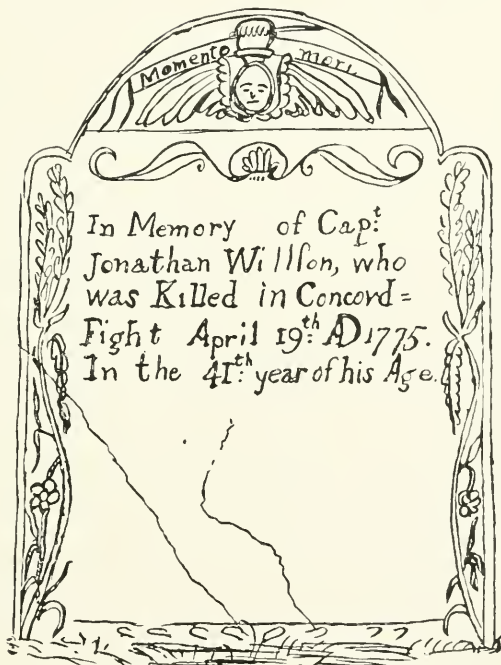 Momento mori.
In Memory of Capt.
Jonathan Willſon, who
was Killed in Concord=
Fight April 19th. AD 1775.
In the 41th. year of his Age.